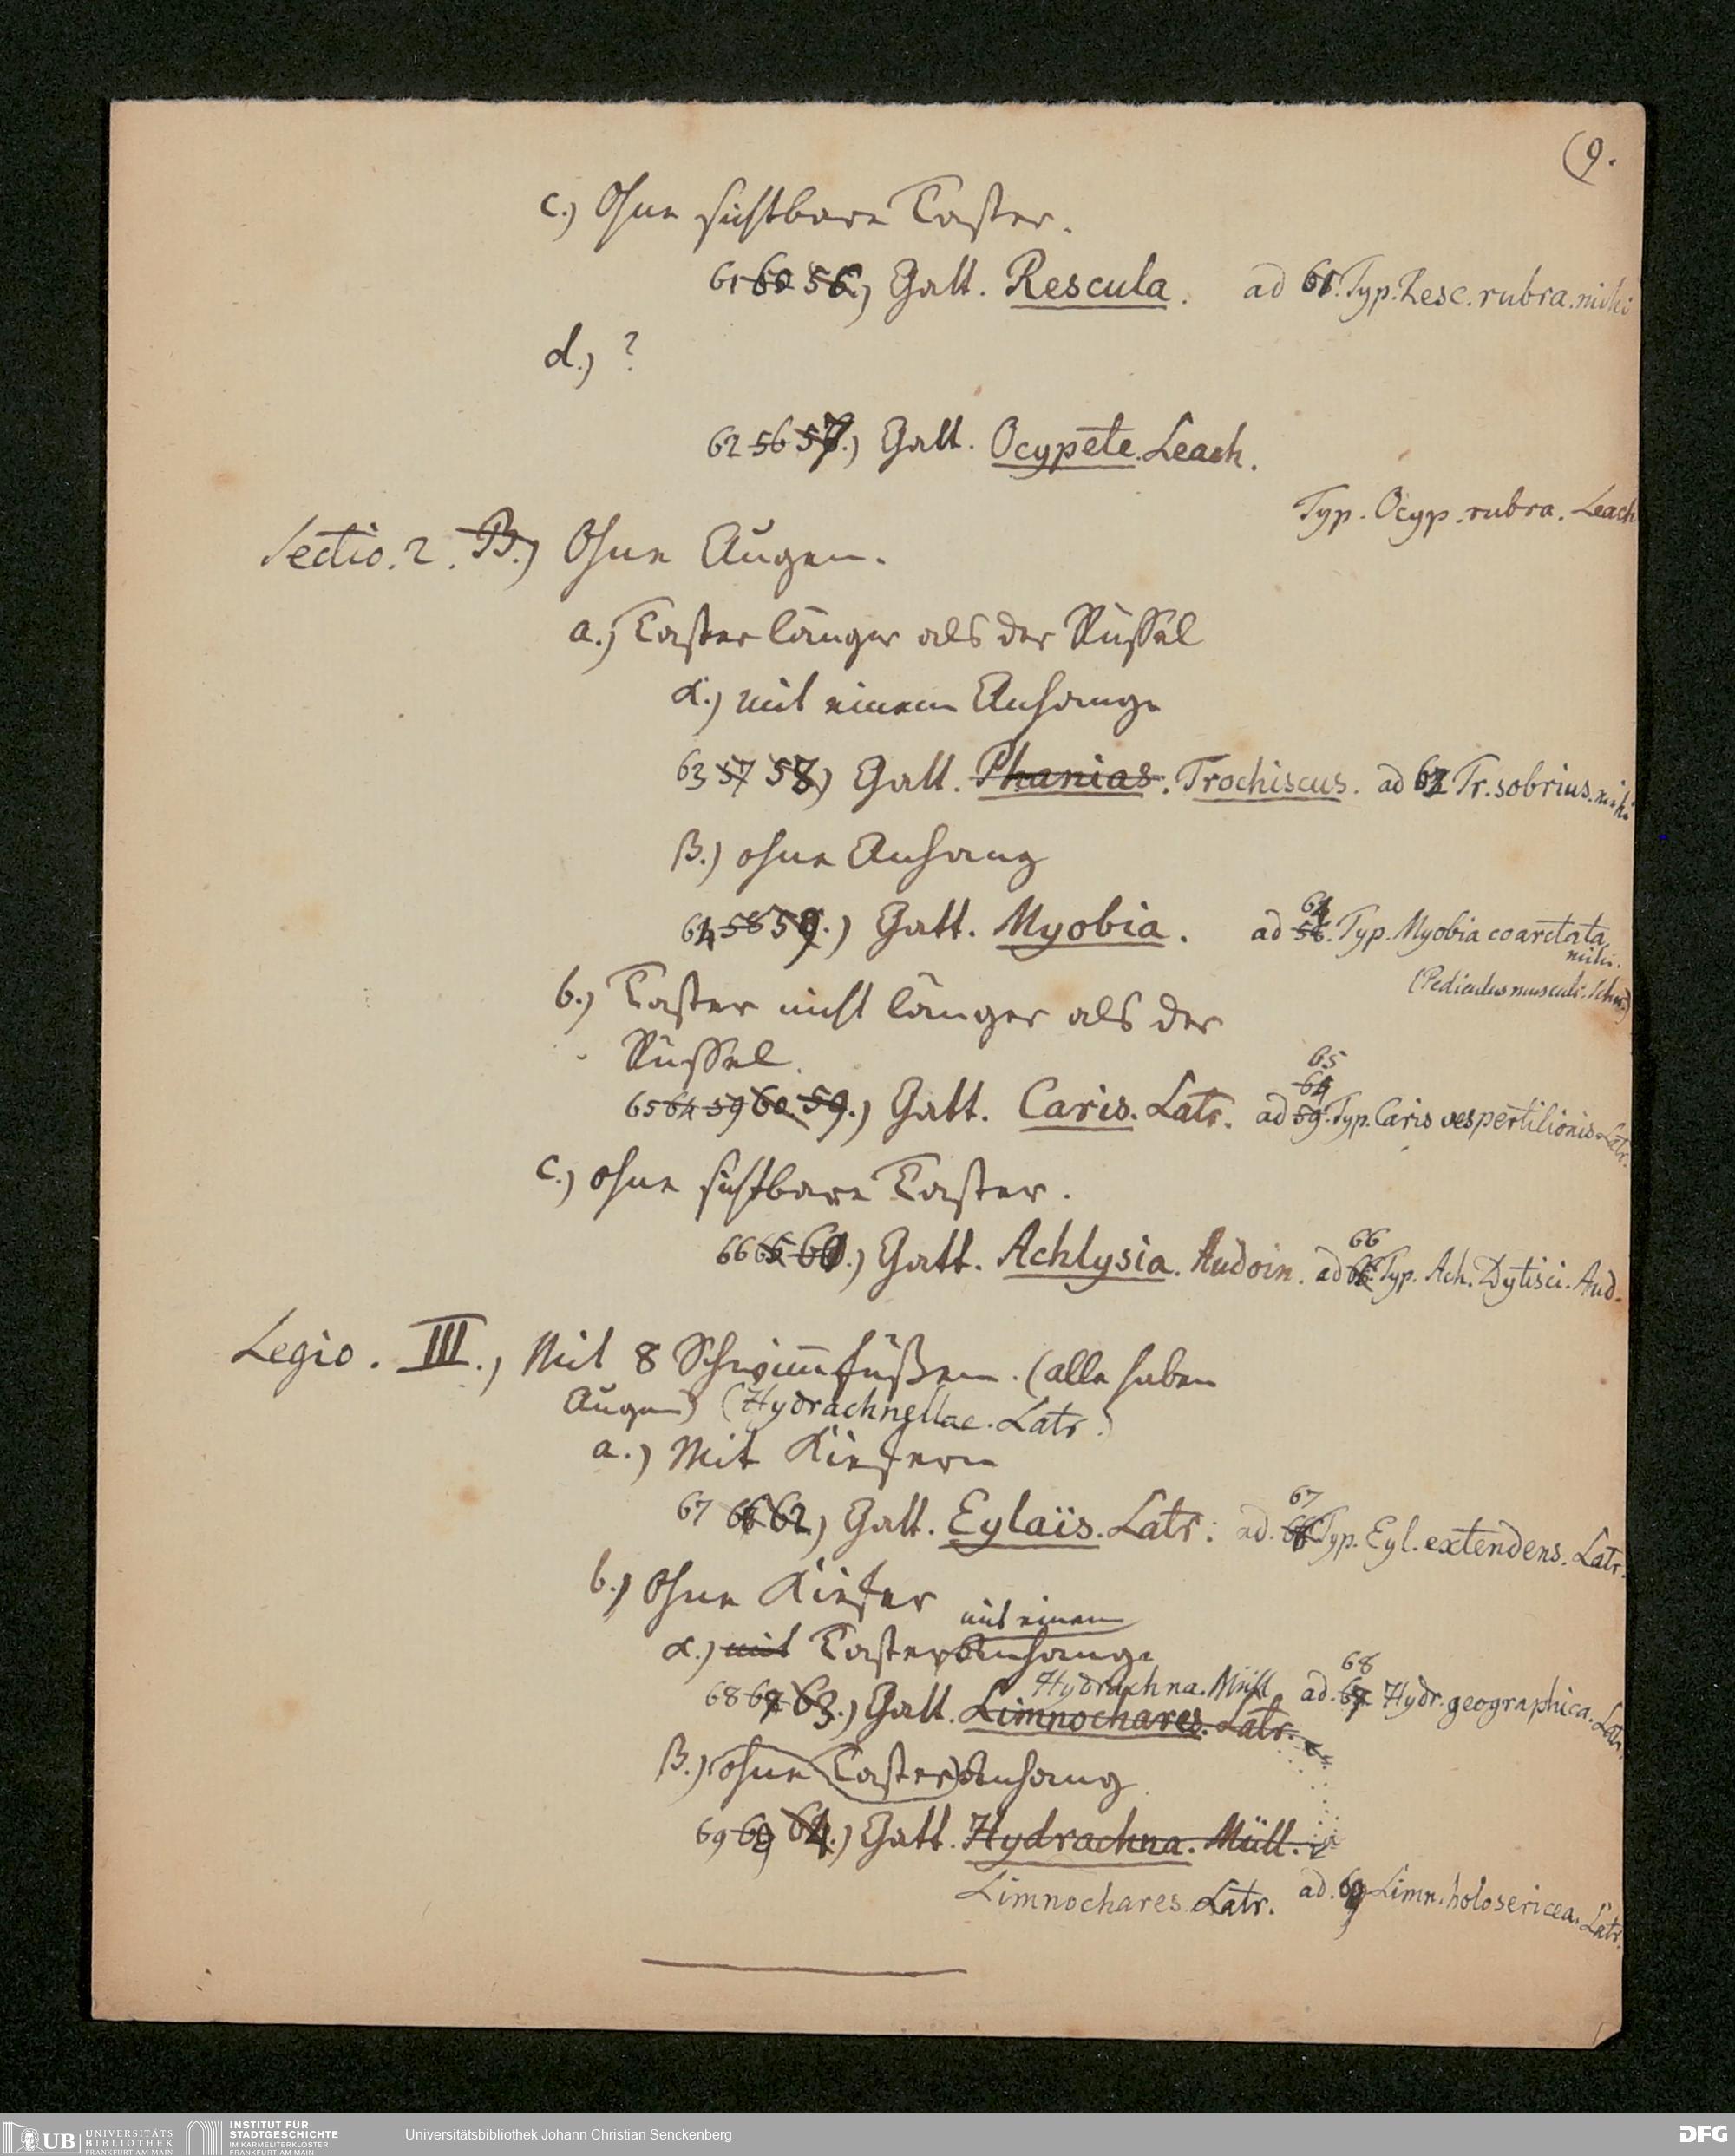 (9.
c.) Ohne sichtbare Taster.
61 60 56.) Gatt. Rescula. ad 61. Typ. Resc. rubra. mihi
d.) ?
62 56 57.) Gatt. Ocypete. Leach.
Typ. Ocyp. rubra. Leach
Sectio. 2. B.) Ohne Augen.
a.) Taster länger als der Rüssel
α.) mit einem Anhange
63 57 58) Gatt. Phanias. Trochiscus. ad 63 Tr. sobrius. mihi
β.) ohne Anhang
64 58 59.) Gatt. Myobia. ad 58. 64 Typ. Myobia coarctata
mihi.
(Pediculus musculi. Schr.)
b.) Taster nicht länger als der
Rüssel.
65 64 59 60. 59.) Gatt. Caris. Latr. ad 59. 64 65 Typ. Caris vespertilionis Latr.
c.) ohne sichtbare Taster.
66 65 60.) Gatt. Achlysia. Audoin. ad 66 Typ. Ach. Dytisci. Aud.
Legio. III., Mit 8 Schwimmfüßen. (alle haben
Augen) (Hydrachnellae. Latr.)
a.) Mit Kiefern
67 66 62) Gatt. Eylaïs. Latr. ad. 66 67 Typ. Eyl. extendens. Latr.
b.) Ohne Kiefer
mit einem
α.) mit Taster Anhange
Hydrachna. Müll
68 67 63.) Gatt. Limnochares. Latr. ad. 67 68 Hydr. geographica. Latr.
β.) ohne Taster Anhang
69 68 64.) Gatt. Hydrachna. Müll.
Limnochares Latr. ad. 69 Limn. holosericea. Latr.
UB UNIVERSITÄTS
BIBLIOTHEK
FRANKFURT AM MAIN
INSTITUT FÜR
STADTGESCHICHTE
IM KARMELITERKLOSTER
FRANKFURT AM MAIN
Universitätsbibliothek Johann Christian Senckenberg
DFG